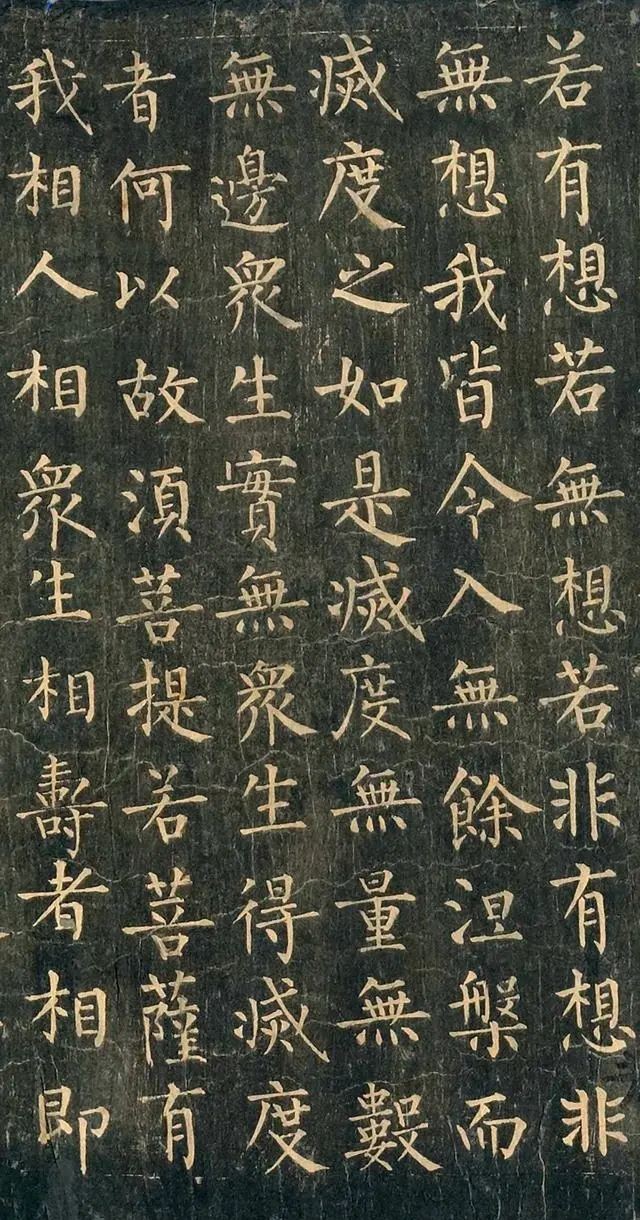 若有想若無想若非有想非
無想我皆令入無餘涅槃而
滅度之如是滅度無量無數
無邊眾生實無眾生得滅度
者何以故須菩提若菩薩有
我相人相眾生相壽者相即